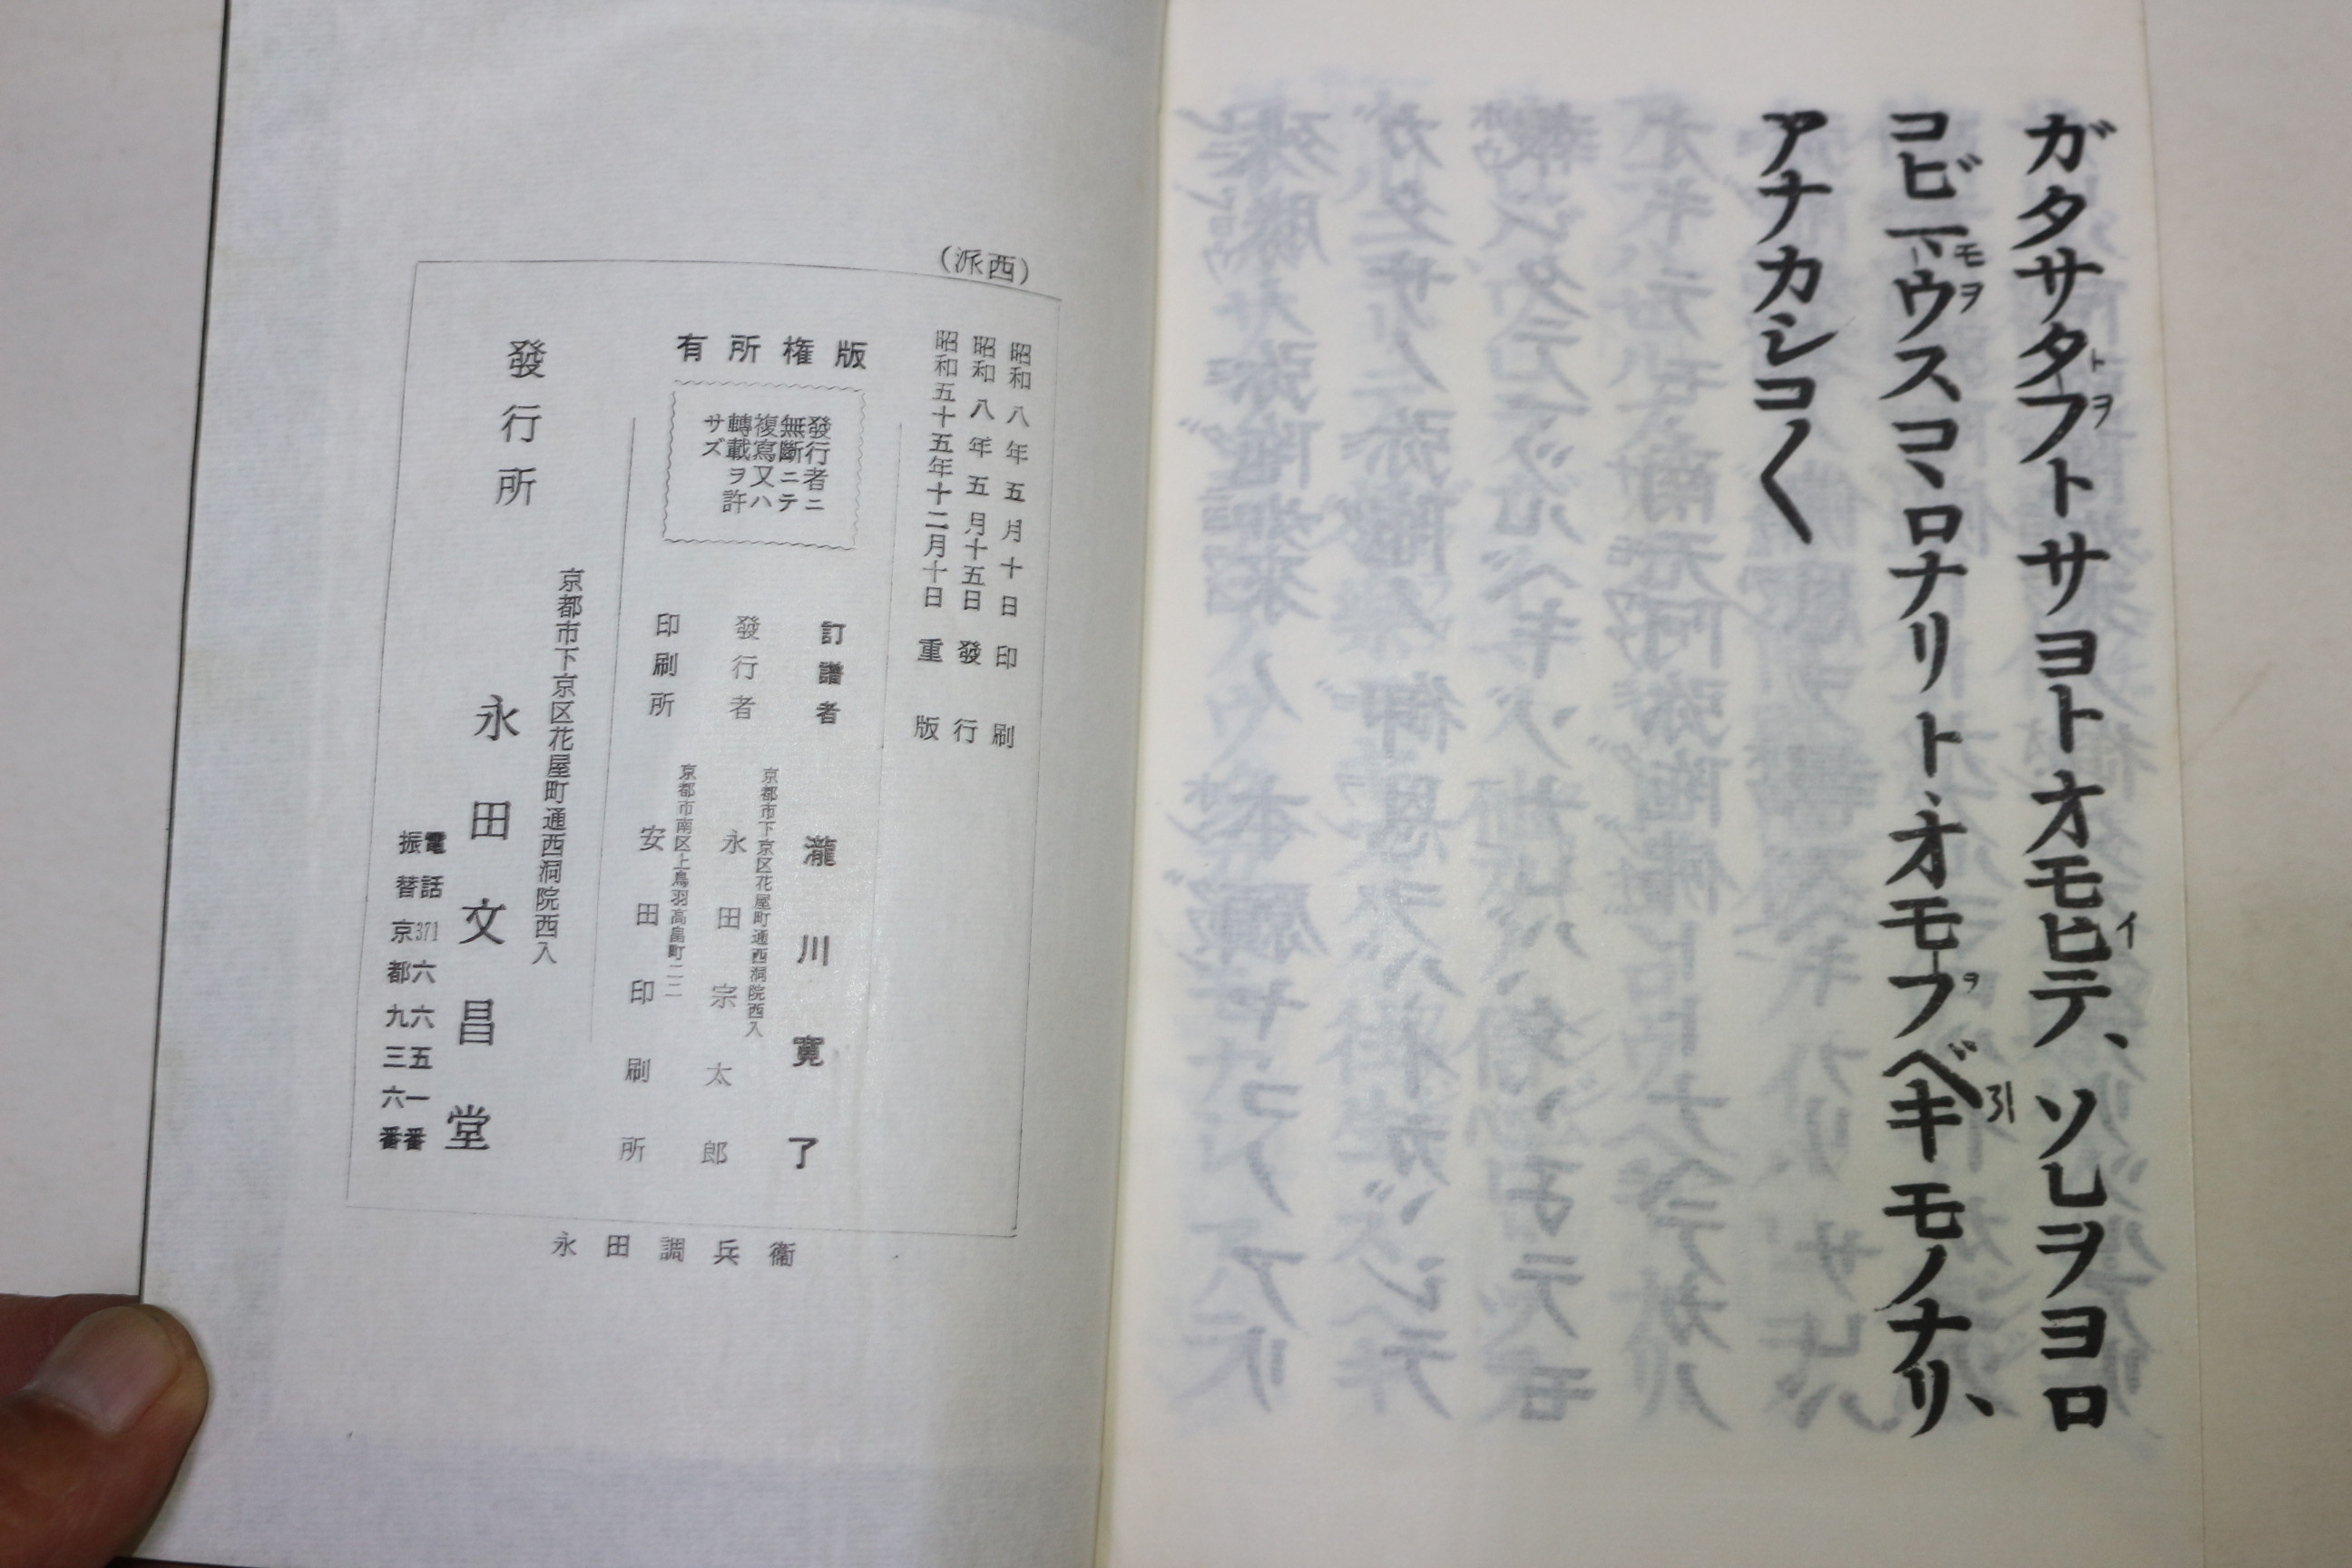 ガタサタフトサヨトオモヒテ、ソレヲヨロ
コビマウスコヽロナリト、オモフベキモノナリ、
アナカシコ〱
(派西)
昭和八年五月十日印刷
昭和八年五月十五日發行
昭和五十五年十二月十日重版
有所権版
發行者ニ
無斷ニテ
複寫又ハ
轉載ヲ許
サズ
訂譜者 瀧川寛了
京都市下京区花屋町通西洞院西入
發行者 永田宗太郎
京都市南区上鳥羽高畠町二二
印刷所 安田印刷所
京都市下京区花屋町通西洞院西入
發行所 永田文昌堂
電話371六六五一番
振替京都九三六番
永田調兵衞